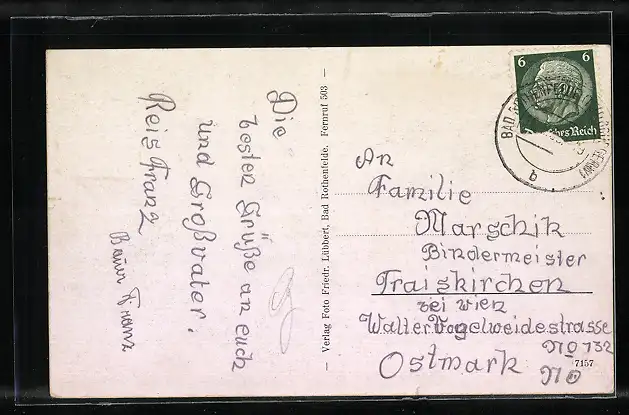 Die
besten Grüße an euch
und Großvater!
Reis Franz
Bauer Franz
— Verlag Foto Friedr. Lübbert, Bad Rothenfelde. Fernruf 503 —
6 6
Deutsches Reich
BAD ROTHENFELDE
b
An
Familie
Marschik
Bindermeister
Traiskirchen
bei Wien
Walter Vogelweidestrasse
No 132
Ostmark
No
7157